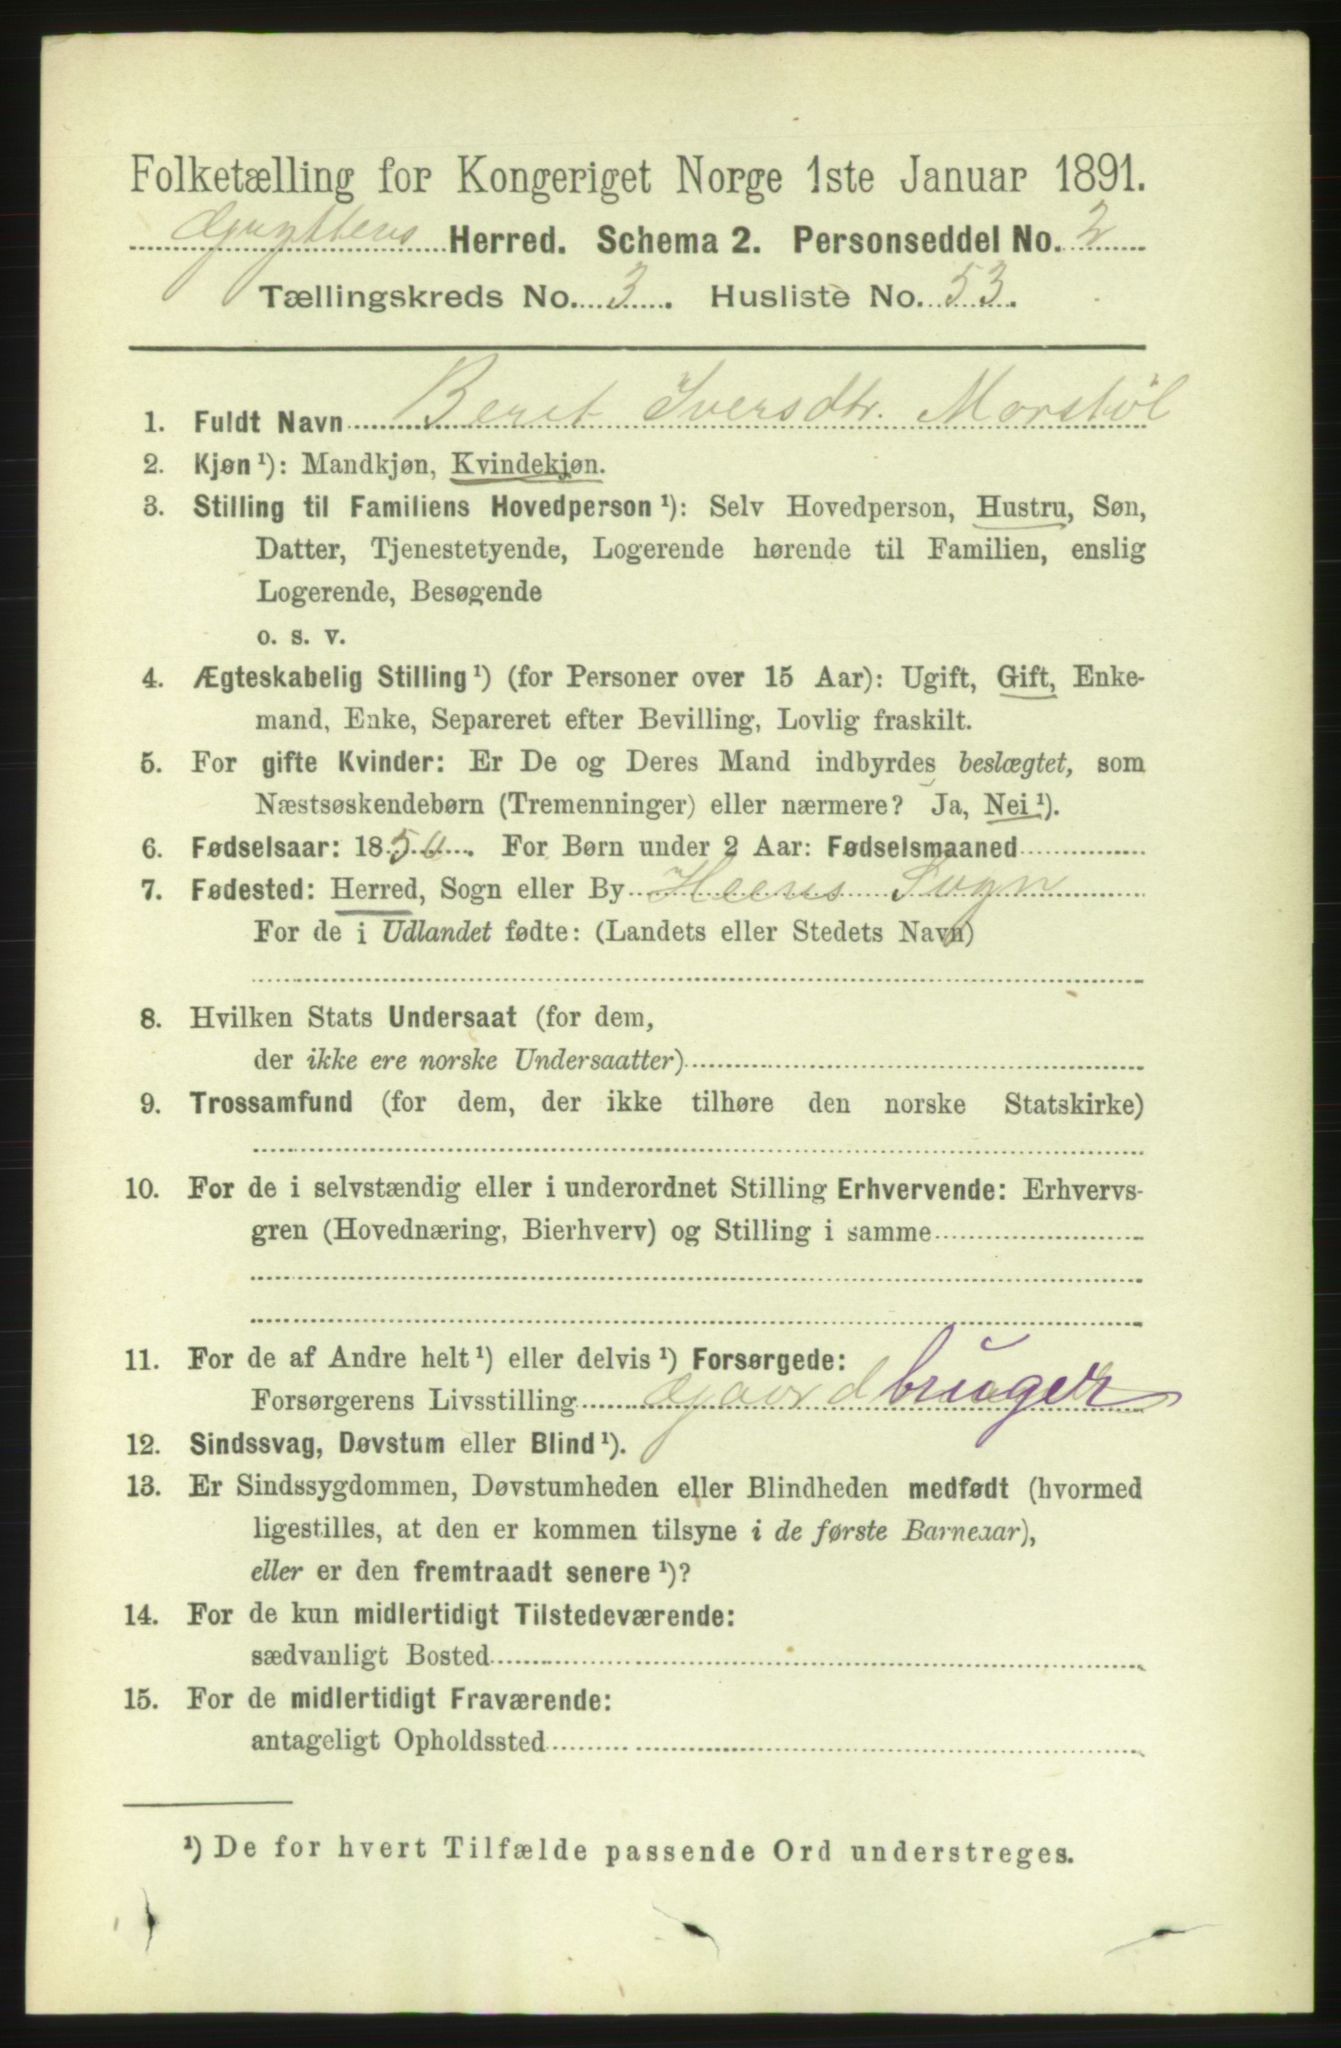 Folketælling for Kongeriget Norge 1ste Januar 1891.
Gryttens Herred. Schema 2. Personseddel No. 2
Tællingskreds No. 3. Husliste No. 53.
1. Fuldt Navn Beret Iversdtr. Morstøl
2. Kjøn ¹): Mandkjøn, Kvindekjøn.
3. Stilling til Familiens Hovedperson ¹): Selv Hovedperson, Hustru, Søn,
Datter, Tjenestetyende, Logerende hørende til Familien, enslig
Logerende, Besøgende
o. s. v.
4. Ægteskabelig Stilling ¹) (for Personer over 15 Aar): Ugift, Gift, Enke-
mand, Enke, Separeret efter Bevilling, Lovlig fraskilt.
5. For gifte Kvinder: Er De og Deres Mand indbyrdes beslægtet, som
Næstsøskendebørn (Tremenninger) eller nærmere? Ja, Nei ¹).
6. Fødselsaar: 1850. For Børn under 2 Aar: Fødselsmaaned
7. Fødested: Herred, Sogn eller By Heens Sogn
For de i Udlandet fødte: (Landets eller Stedets Navn)
8. Hvilken Stats Undersaat (for dem,
der ikke ere norske Undersaatter)
9. Trossamfund (for dem, der ikke tilhøre den norske Statskirke)
10. For de i selvstændig eller i underordnet Stilling Erhvervende: Erhvervs-
gren (Hovednæring, Bierhverv) og Stilling i samme
11. For de af Andre helt ¹) eller delvis ¹) Forsørgede:
Forsørgerens Livsstilling Gaardbruger
12. Sindssvag, Døvstum eller Blind ¹).
13. Er Sindssygdommen, Døvstumheden eller Blindheden medfødt (hvormed
ligestilles, at den er kommen tilsyne i de første Barneaar),
eller er den fremtraadt senere ¹)?
14. For de kun midlertidigt Tilstedeværende:
sædvanligt Bosted
15. For de midlertidigt Fraværende:
antageligt Opholdssted
¹) De for hvert Tilfælde passende Ord understreges.